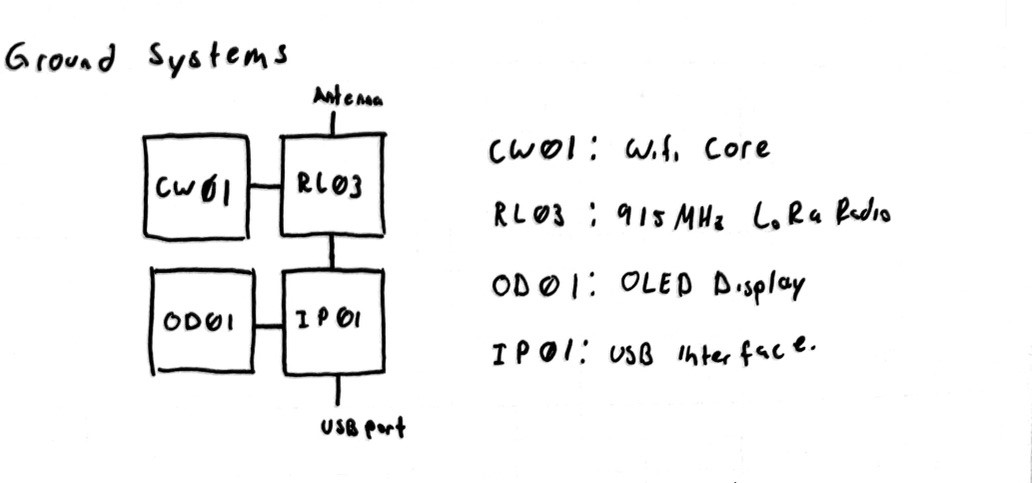 Ground Systems
Antenna
CW01
RL03
OD01
IP01
USB port
CW01: Wifi Core
RL03: 915 MHz LoRa Radio
OD01: OLED Display
IP01: USB Interface.